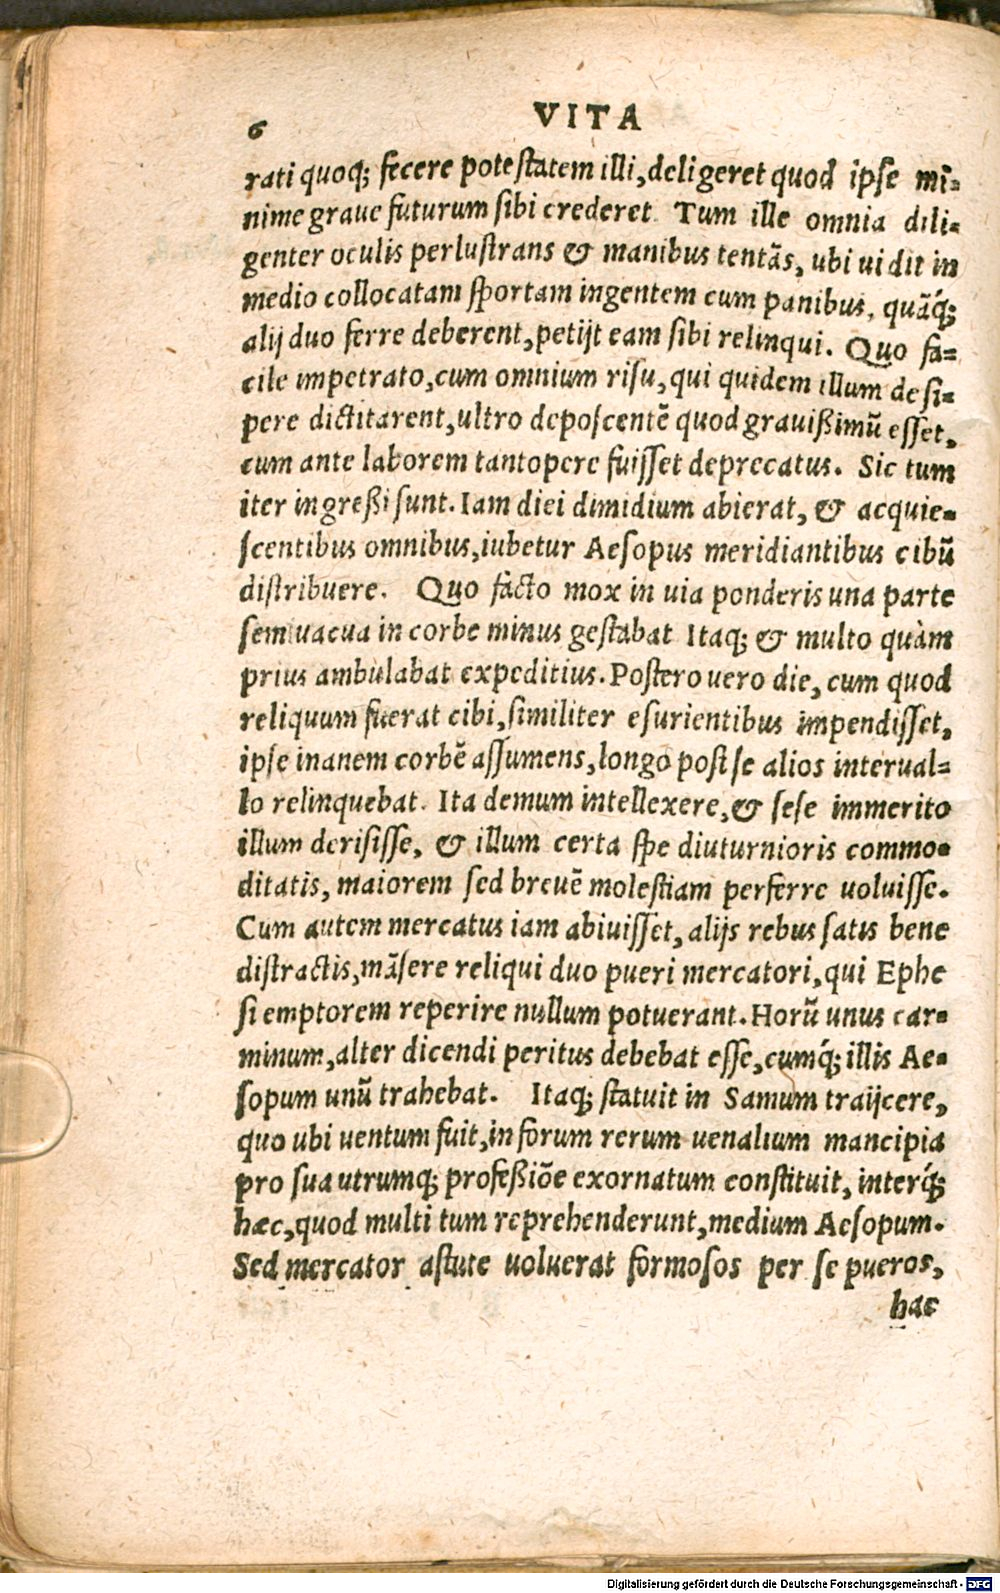 6 VITA
rati quoq; fecere potestatem illi, deligeret quod ipse mi-
nime graue futurum sibi crederet. Tum ille omnia dili-
genter oculis perlustrans & manibus tentãs, ubi uidit in
medio collocatam sportam ingentem cum panibus, quãq́;
alij duo ferre deberent, petijt eam sibi relinqui. Quo fa-
cile impetrato, cum omnium risu, qui quidem illum desi-
pere dictitarent, ultro deposcentẽ quod grauißimũ esset,
cum ante laborem tantopere fuisset deprecatus. Sic tum
iter ingreßi sunt. Iam diei dimidium abierat, & acquie-
scentibus omnibus, iubetur Aesopus meridiantibus cibũ
distribuere. Quo facto mox in uia ponderis una parte
semiuacua in corbe minus gestabat Itaq; & multo quàm
prius ambulabat expeditius. Postero uero die, cum quod
reliquum fuerat cibi, similiter esurientibus impendisset,
ipse inanem corbẽ assumens, longo post se alios interual-
lo relinquebat. Ita demum intellexere, & sese immerito
illum derisisse, & illum certa spe diuturnioris commo-
ditatis, maiorem sed breuẽ molestiam perferre uoluisse.
Cum autem mercatus iam abiuisset, alijs rebus satis bene
distractis, mãsere reliqui duo pueri mercatori, qui Ephe
si emptorem reperire nullum potuerant. Horũ unus car-
minum, alter dicendi peritus debebat esse, cumq́; illis Ae-
sopum unũ trahebat. Itaq; statuit in Samum traijcere,
quo ubi uentum fuit, in forum rerum uenalium mancipia
pro sua utrumq; profeßiõe exornatum constituit, interq́;
hæc, quod multi tum reprehenderunt, medium Aesopum.
Sed mercator astute uoluerat formosos per se pueros,
hac
Digitalisierung gefördert durch die Deutsche Forschungsgemeinschaft - DFG